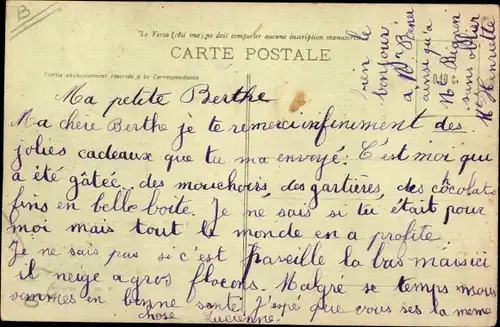 B
"Le Verso (côté vue) ne doit comporter aucune inscription manuscrite
CARTE POSTALE
Partie exclusivement réservée à la Correspondance
Ma petite Berthe
Ma chère Berthe je te remerci infiniment des
jolies cadeaux que tu ma envoyé. C'est moi qui
a été gâtée. des mouchoirs, des gartières, des côcolats
fins en belle boite. Je ne sais si tu était pour
moi mais tout le monde en a profite
Je ne sais pas si c'est pareille la bas mais ici
il neige a gros flocons. Malgré se temps nous
sommes en bonne santé. J'espé que vous ses la meme
chose Lucienne.
rien le
bonjour
a Mr
ainsi qu'a
Me
sans oublier
Me Henriette